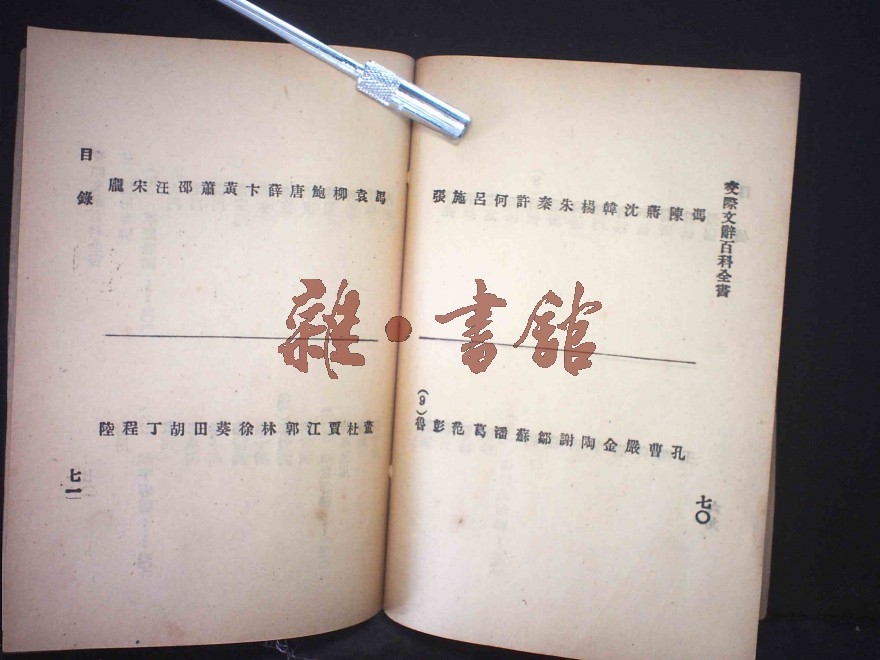 交際文辭百科全書
馮陳蔣沈韓楊朱秦許何呂施張
孔曹嚴金陶謝鄒蘇潘葛范彭魯
(9)
七〇
馬袁柳鮑唐薛卞黃蕭邵汪宋龐
董杜賈江郭林徐蔡田胡丁程陸
目錄
七一
雜·書館